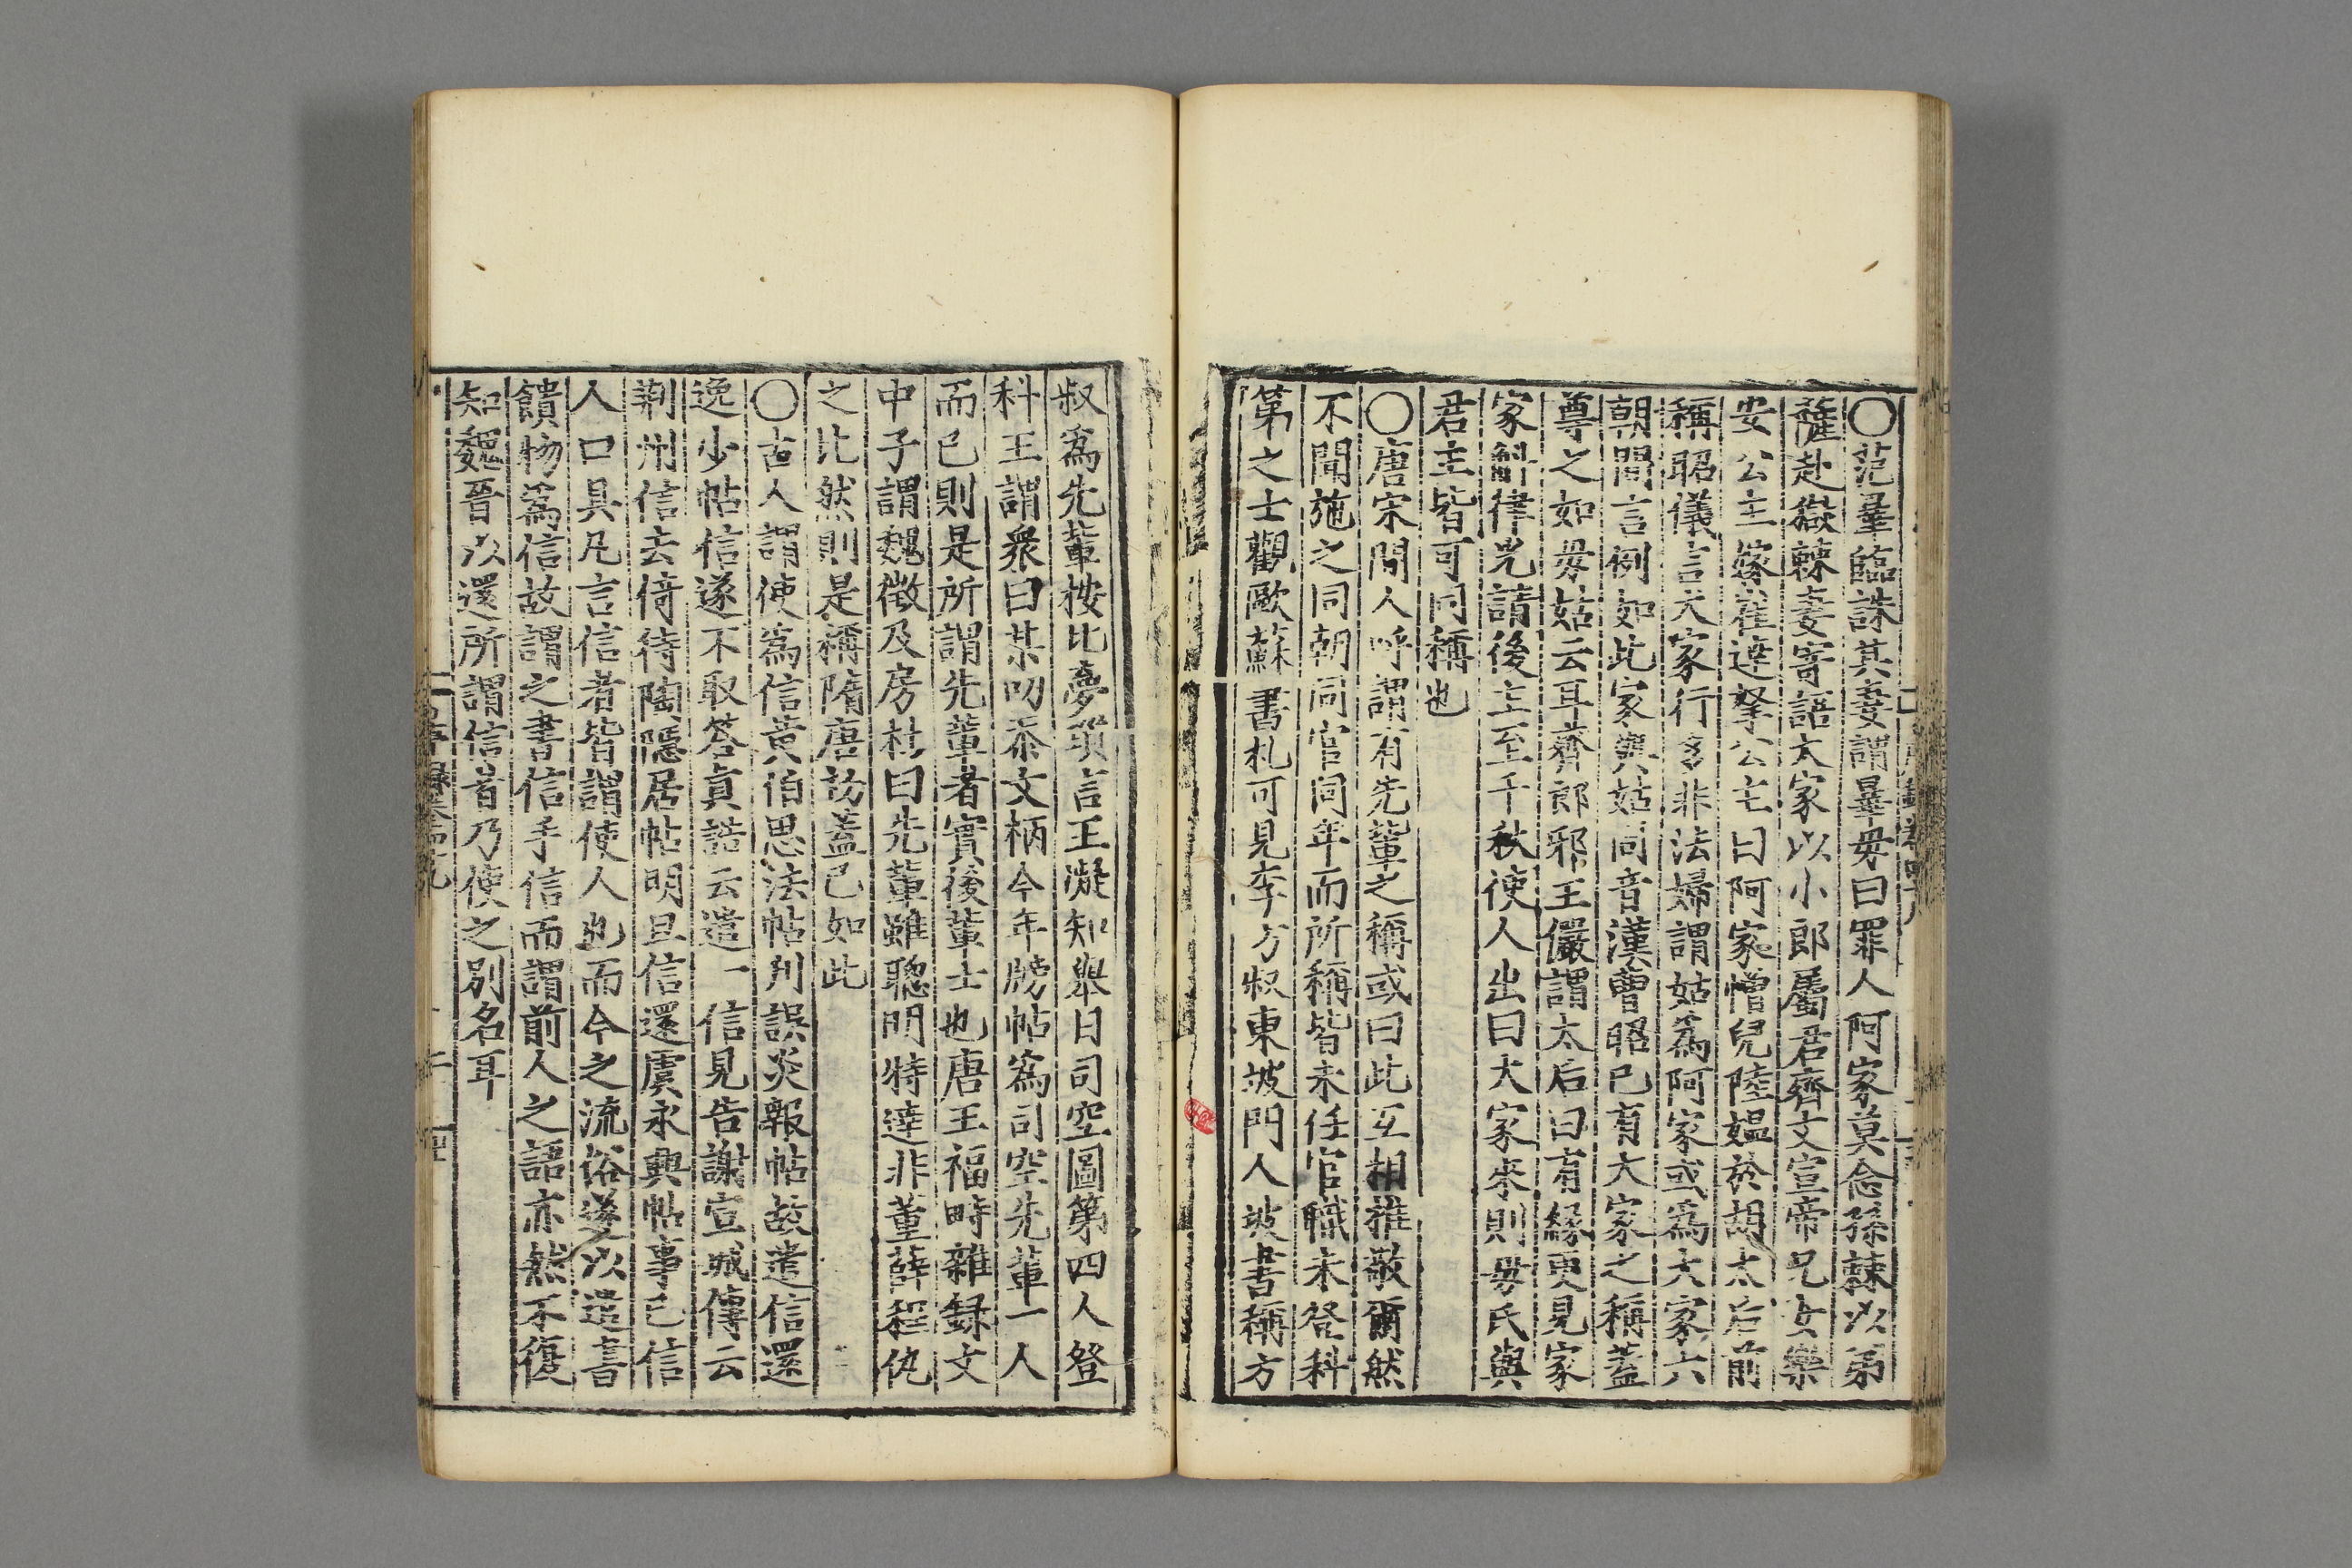 〇范曅臨誅其妻謂曅毋曰罪人阿家莫念孫棘以弟
薩赴嶽棘妻寄語大家以小郎屬君齊文宣帝兄女樂
安公主嫁崔達拏公主曰阿家憎兒陸媼於胡太后前
稱昭儀言大家行多非法婦謂姑爲阿家或爲大家六
朝間言例如此家與姑同音漢曹昭已有大家之稱蓋
尊之如毋姑云耳齊郎邪王儼謂太后曰有緣更見家
家斛律光請後主至千秋使人出曰大家來則毋氏與
君主皆可同稱也
〇唐宋間人呼謂有先輩之稱或曰此互相推敬爾然
不聞施之同朝同官同年而所稱皆未任官職未登科
第之士觀歐蘇書札可見李方叔東坡門人坡書稱方
叔爲先輩按比夢瑣言王凝知舉日司空圖第四人登
科王謂衆曰某叨忝文柄今年牓帖爲司空先輩一人
而已則是所謂先輩者實後輩士也唐王福畤雜録文
中子謂魏徵及房杜曰先輩雖聰明特達非董薛程仇
之比然則是稱隋唐訪蓋已如此
〇古人謂使爲信黄伯思法帖刋誤炎報帖故遣信還
逸少帖信遂不取答真誥云遣一信見告謝宣城傳云
荆州信去倚待陶隱居帖明旦信還虞永興帖事已信
人口具凡言信者皆謂使人也而今之流俗遂以遣書
饋物爲信故謂之書信手信而謂前人之語亦然不復
知魏晉以還所謂信者乃使之別名耳